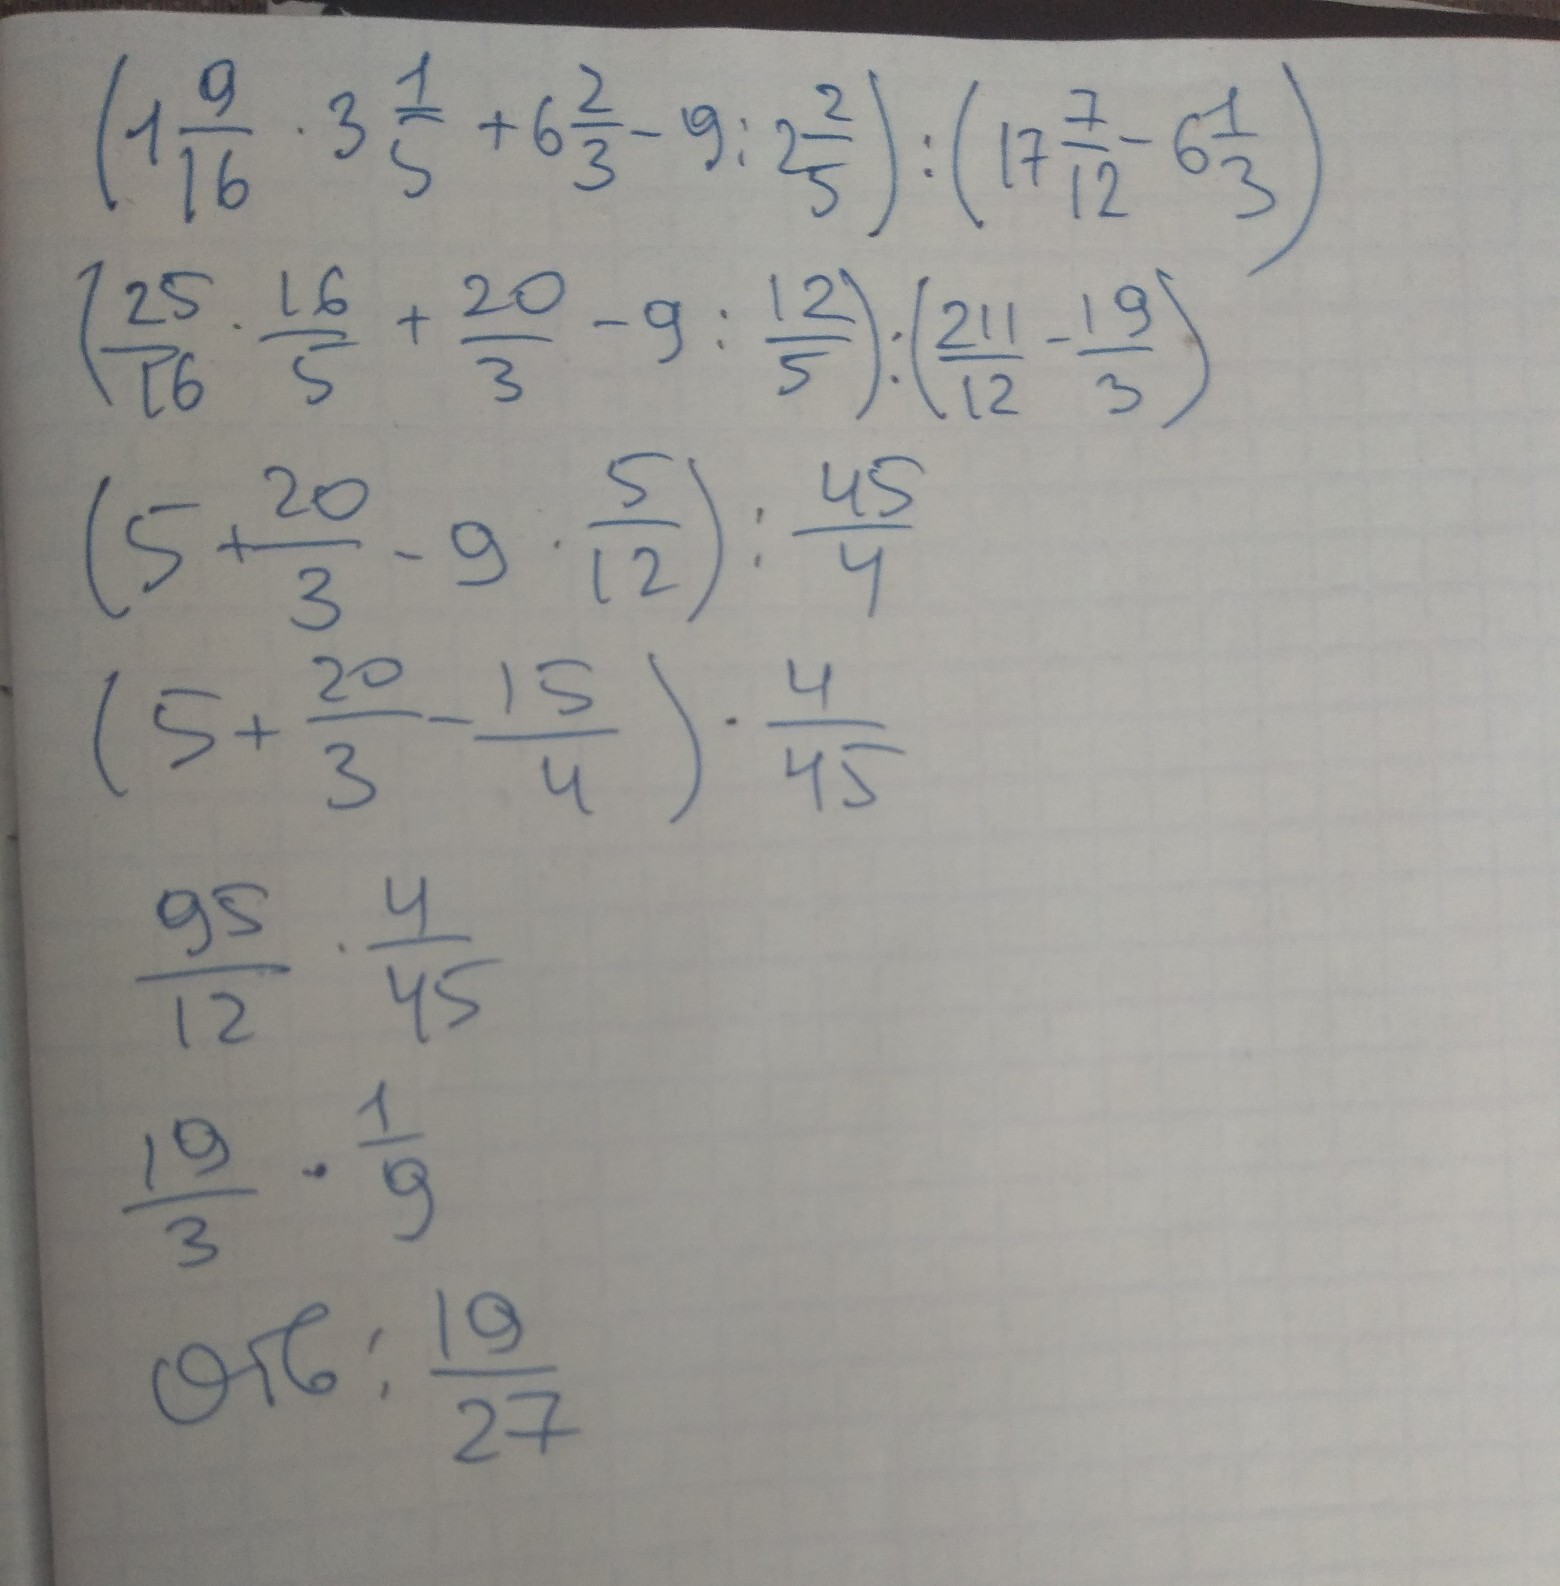 (1 9/16 · 3 1/5 + 6 2/3 - 9 : 2 2/5) : (17 7/12 - 6 1/3)
(25/16 · 16/5 + 20/3 - 9 : 12/5) : (211/12 - 19/3)
(5 + 20/3 - 9 · 5/12) : 45/4
(5 + 20/3 - 15/4) · 4/45
95/12 · 4/45
19/3 · 1/9
Отв: 19/27